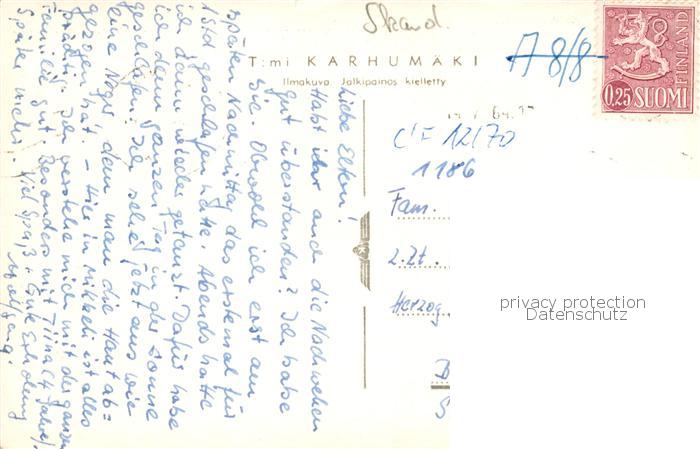 Skand.
A 8/8
T:mi KARHUMÄKI
Ilmakuva. Jälkipainos kielletty
FINLAND
0.25 SUOMI
C'F 12/70
1186
Fam.
z. Zt.
Herzog
privacy protection
Datenschutz
Liebe Eltern!
Habt ihr auch die Nachwehen
gut überstanden? Ich habe
sie. Obwohl ich erst am
späten Nachmittag das erstemal für
1 Std geschlafen hatte. Abends hatte
ich dann wieder getanzt. Dafür habe
ich den ganzen Tag in der Sonne
geschlafen! Ich sehe jetzt aus wie
eine Neger, dem man die Haut ab=
gezogen hat. – Hier in Mikkeli ist alles
prächtig. Ich verstehe mich mit der ganzen
Familie gut. Besonders mit Tiina (4 Jahre).
Später mehr. Viel Spaß + Gute Erholung
Wolfgang.